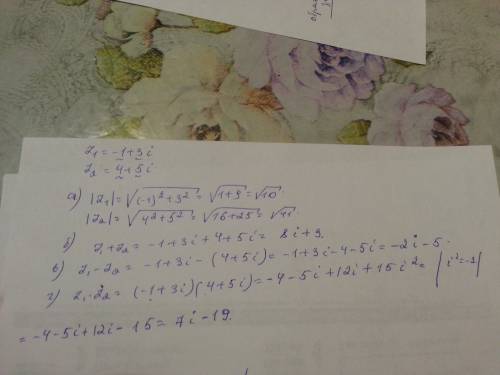 z₁ = -1+3i
z₂ = 4+5i
а) |z₁| = √((-1)²+3²) = √(1+9) = √10
|z₂| = √(4²+5²) = √(16+25) = √41
б) z₁+z₂ = -1+3i+4+5i = 8i+3.
в) z₁-z₂ = -1+3i-(4+5i) = -1+3i-4-5i = -2i-5.
г) z₁·z₂ = (-1+3i)(4+5i) = -4-5i+12i+15i² = |i²=-1|
= -4-5i+12i-15 = 7i-19.